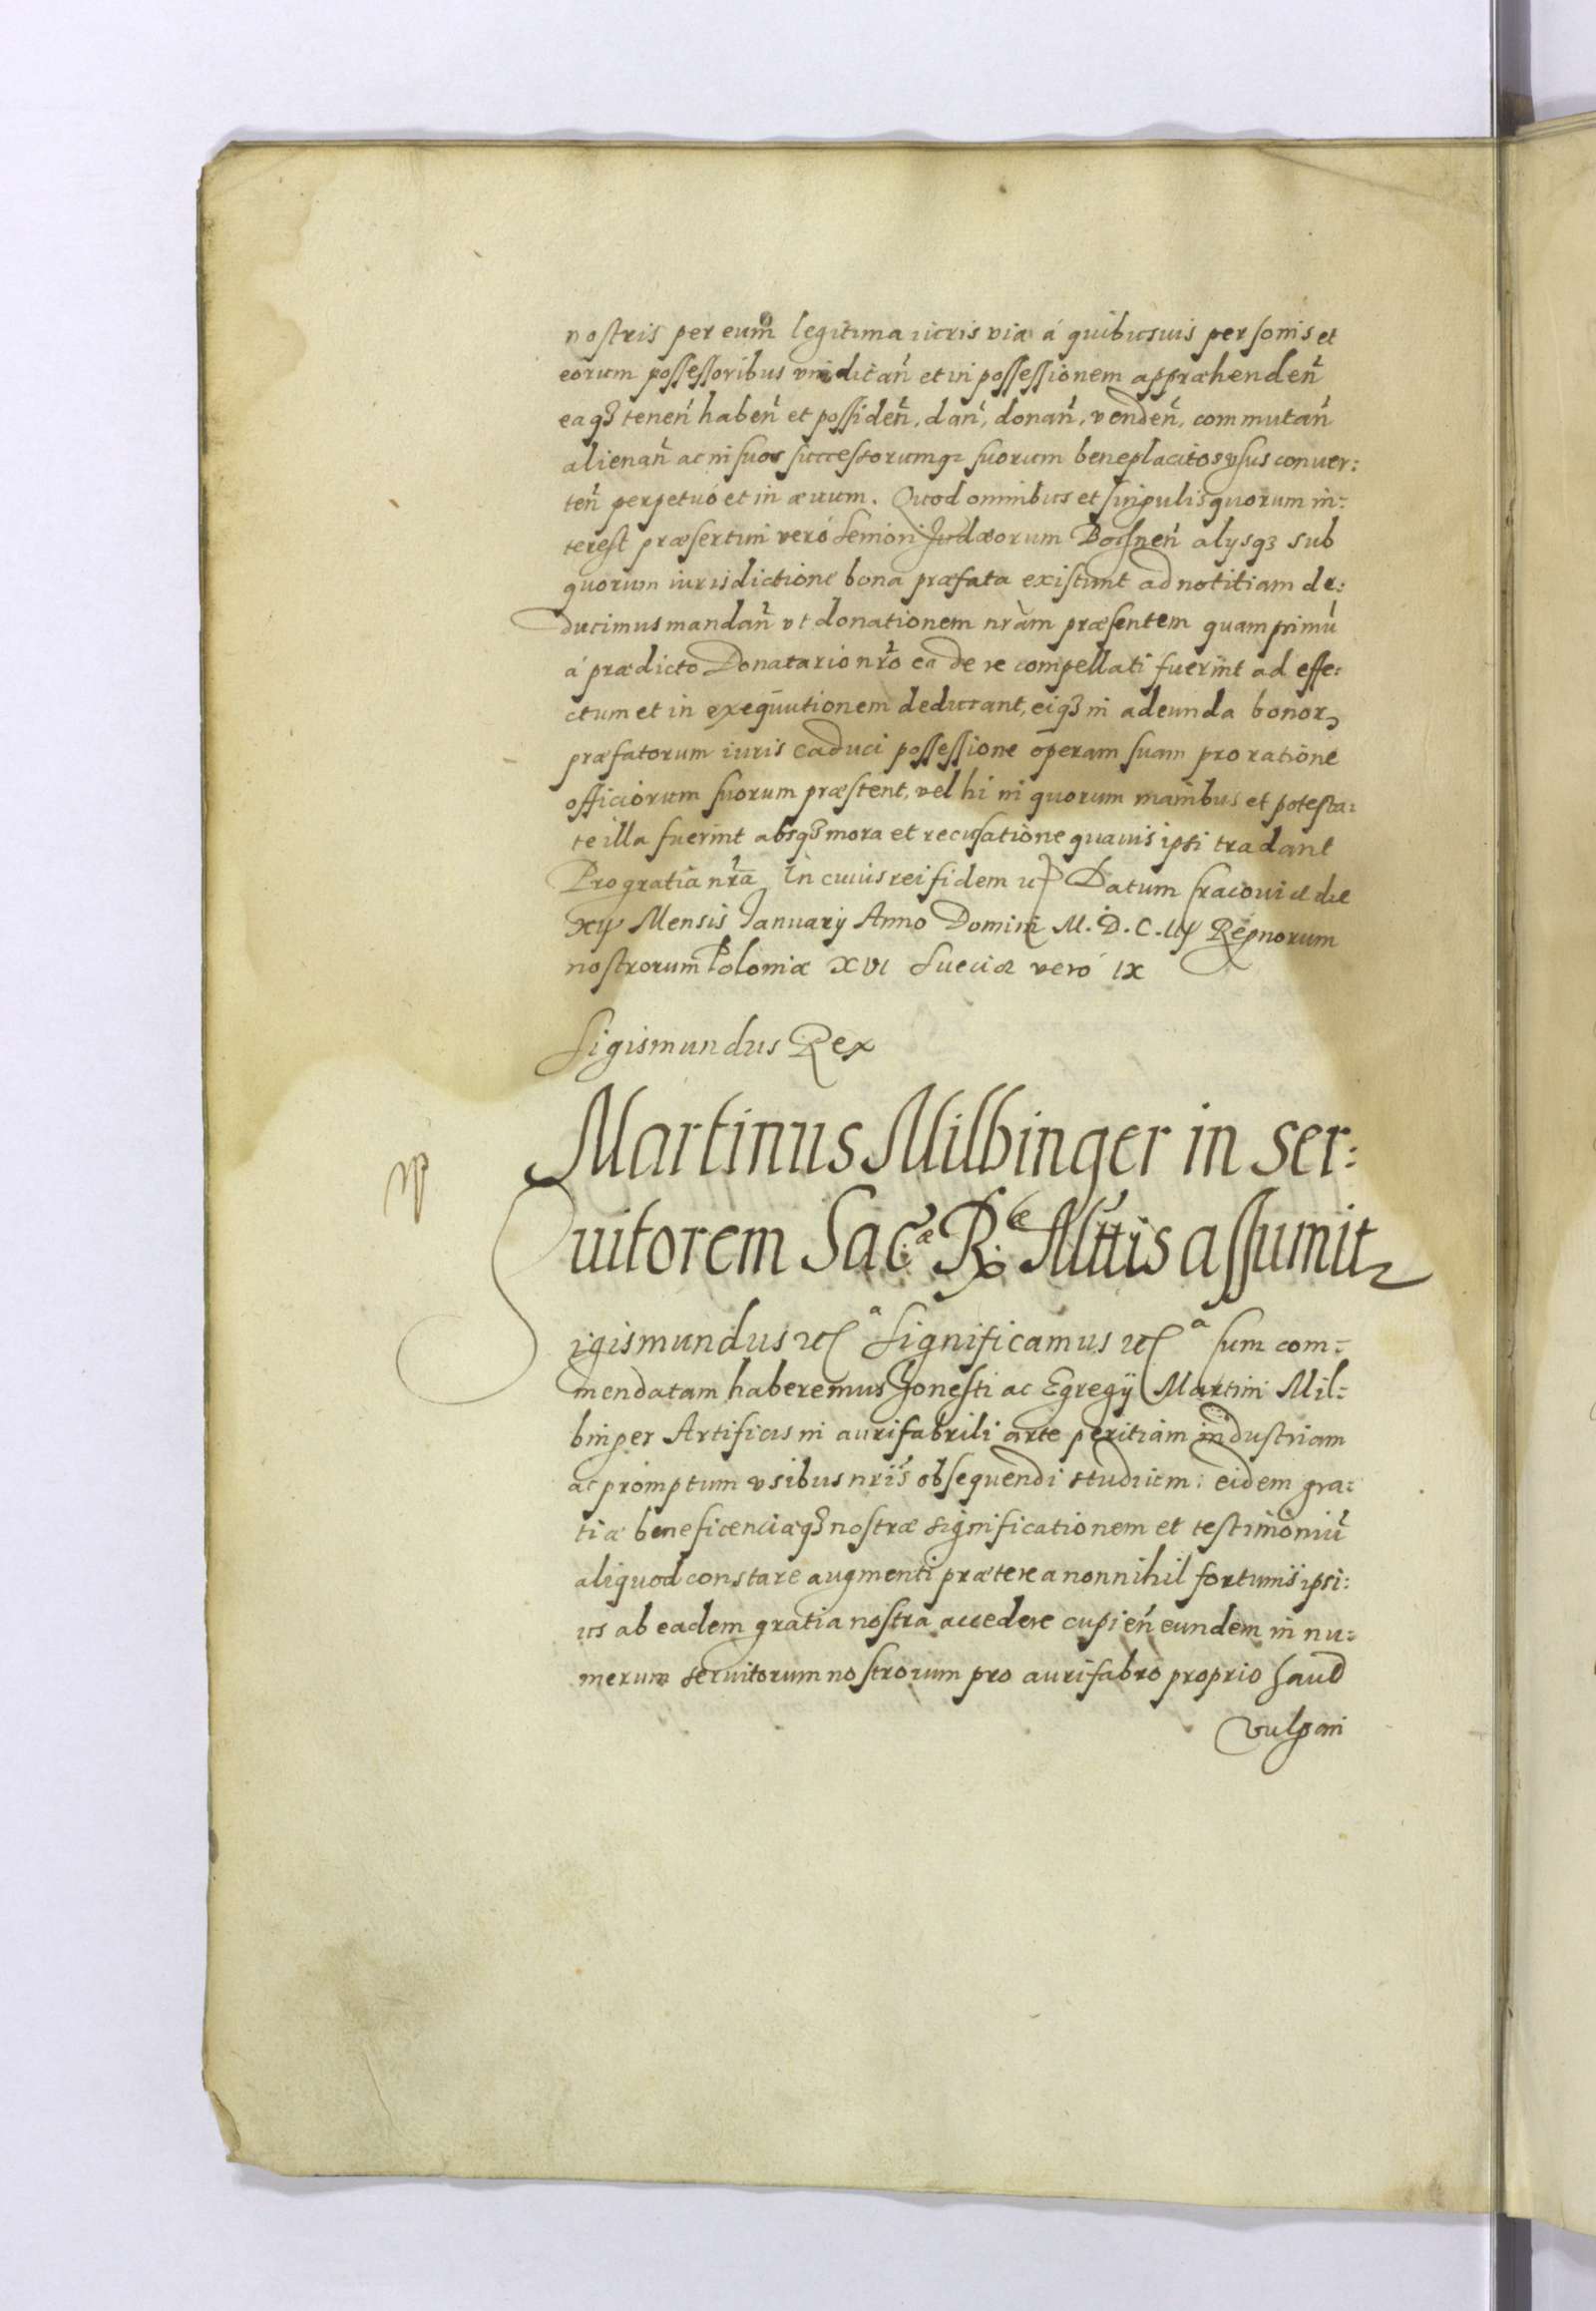 nostris per eum legitima iuris via á quibusuis personis et
eorum possessoribus vindicań et in possessionem appræhendeń
eaqꝫ teneń habeń et possideń, dań, donań, vendeń, commutań
alienań ac in suos successorumqꝫ suorum beneplacitos vsus conuer:
teń perpetuó et in æuum. Quod omnibus et singulis quorum in:
terest præsertim veró Seniori Judæorum Posneń alysqꝫ sub
quorum iurisdictione bona præfata existunt ad notitiam de:
ducimus mandań vt donationem nrám præsentem quamprimú
á prædicto Donatario nró ea de re compellati fuerint ad effe:
ctum et in exequutionem deducant, eiqꝫ in adeunda bonorꝫ
præfatorum iuris caduci possessione operam suam pro ratione
officiorum suorum præstent, vel hi in quorum manibus et potesta:
te illa fuerint absqꝫ mora et recusatione quauis ipsi tradant
Pro gratia nrá In cuius rei fidem Datum Cracouiæ die
xij Mensis Januarij Anno Domini M.D.C.iij Regnorum
nostrorum Poloniæ XVI Sueciæ veró IX
Sigismundus Rex
Martinus Milbinger in ser:
uitorem Sacᵃᵉ Rᵃᵉ Mttis assumitz
Sigismundus etc͏ᵃ Significamus etcᵃ sum com:
mendatam haberemus Honesti ac Egregij Martini Mil:
binger Artificis in aurifabrili arte peritiam industriam
ac promptum vsibus nris obsequendi studium: eidem gra:
tiæ beneficenciæqꝫ nostræ significationem et testimoniú
aliquod constare augmenti præterea nonnihil fortunis ipsi:
us ab eadem gratia nostra accedere cupień eundem in nu:
merum seruitorum nostrorum pro aurifabro proprio haud
vulgari